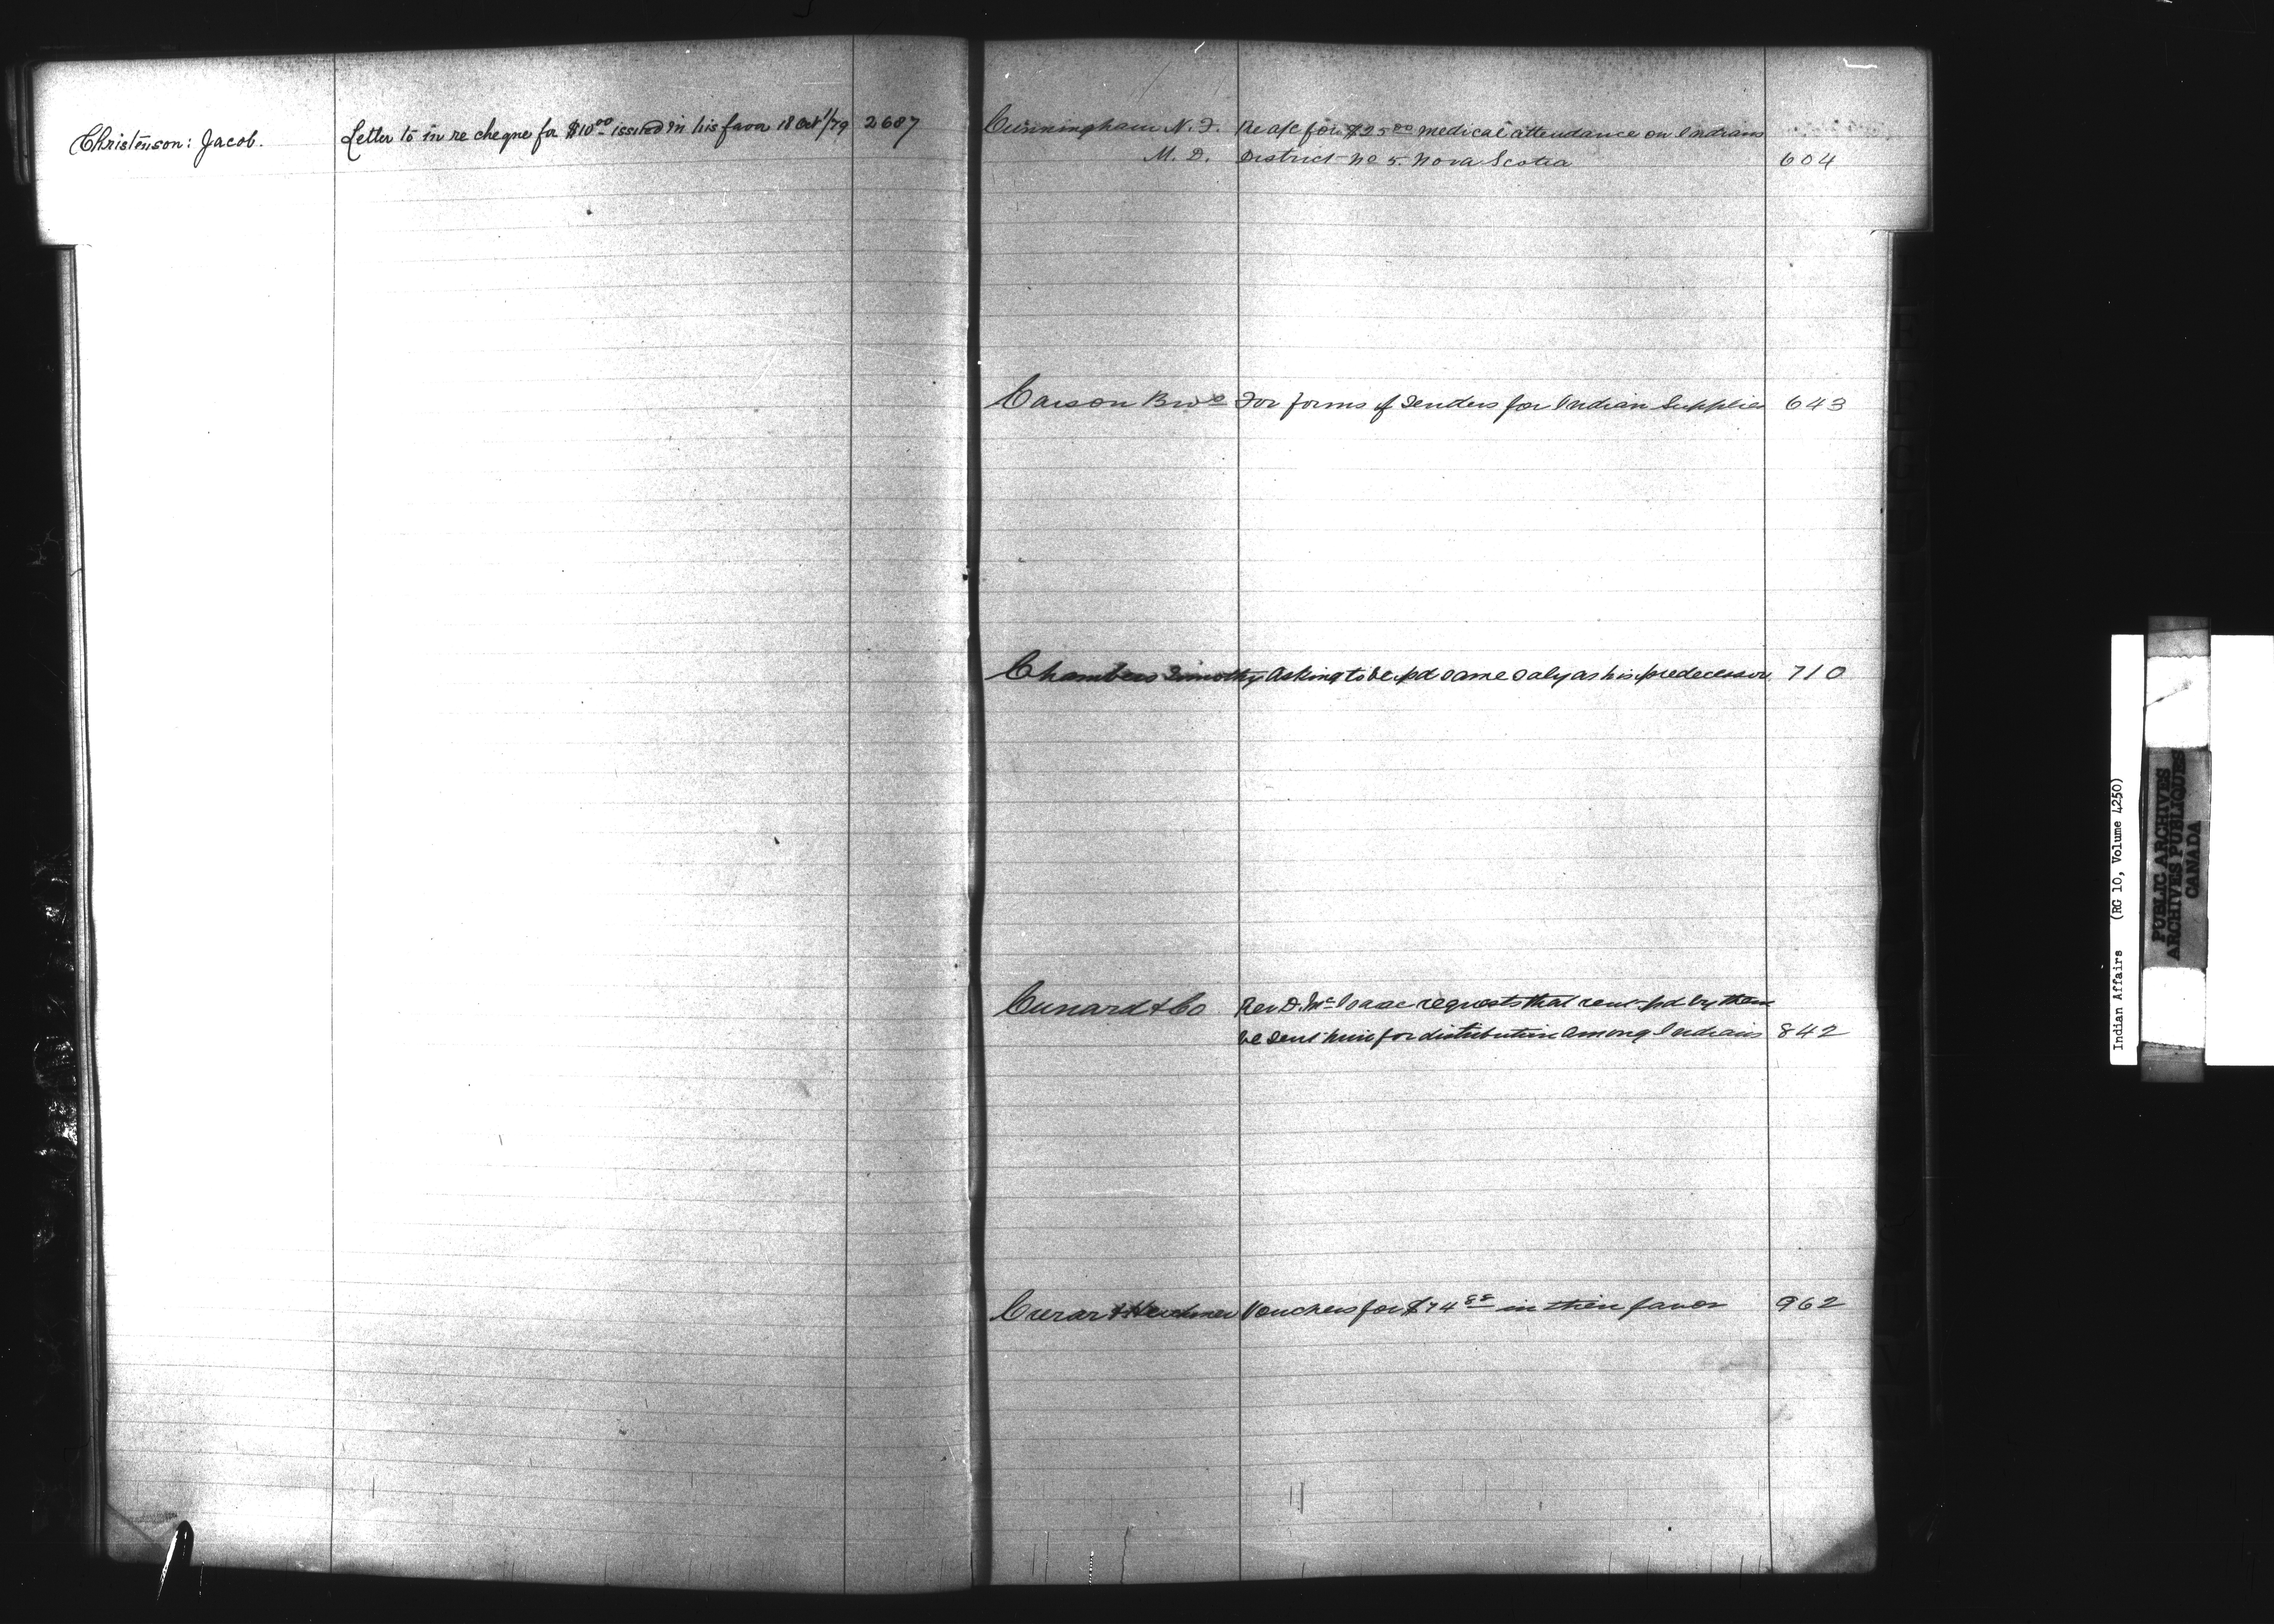 Christenson: Jacob. Letter to in re cheque for $10.00 issued in his favor 18 Oct/79 2687
Cunningham N. F. Re a/c for $25.00 medical attendance on Indians
M. D. District No 5. Nova Scotia 604
Carson Bros For forms of Tenders for Indian Supplies 643
Chambers Timothy Asking to be pd same saly as his predecessor 710
Cunard & Co Rev D. McIsaac requests that rent pd by them
be sent him for distribution among Indians 842
Crerar & Vouchers for $74.88 in their favor 962
Indian Affairs (RG 10, Volume 4250)
PUBLIC ARCHIVES
ARCHIVES PUBLIQUES
CANADA